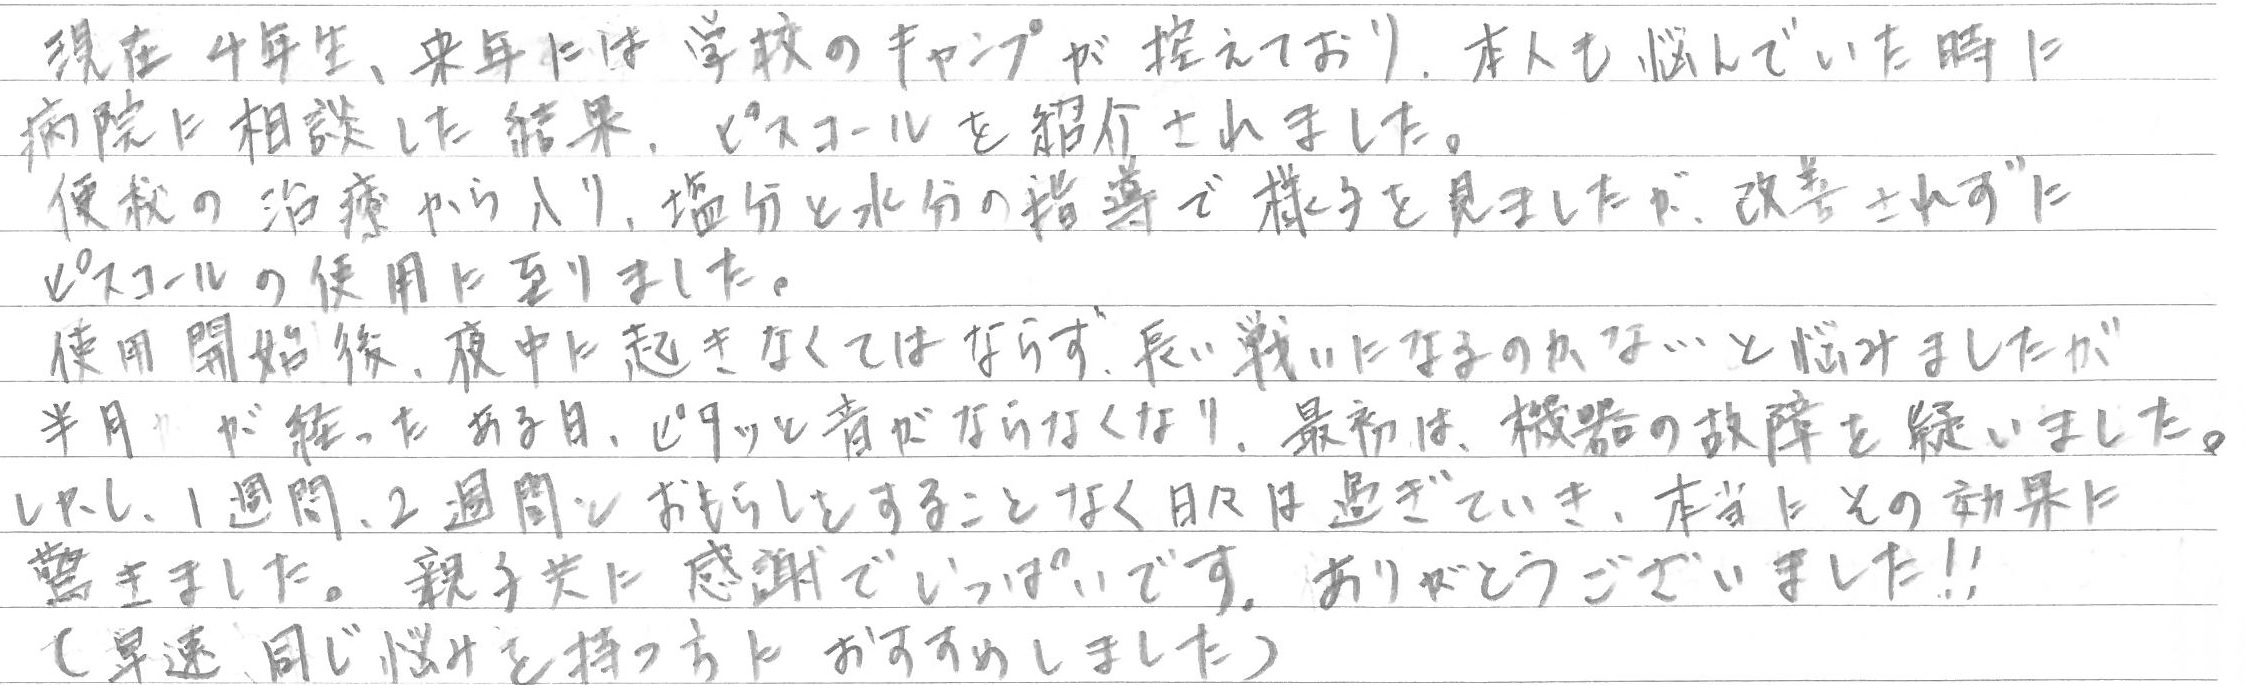 現在4年生、来年には学校のキャンプが控えており、本人も悩んでいた時に
病院に相談した結果、ピスコールを紹介されました。
便秘の治療から入り、塩分と水分の指導で様子を見ましたが、改善されずに
ピスコールの使用に至りました。
使用開始後、夜中に起きなくてはならず、長い戦いになるのかな…と悩みましたが
半月が経ったある日、ピタッと音がならなくなり、最初は、機器の故障を疑いました。
しかし、1週間、2週間とおもらしをすることなく日々は過ぎていき、本当にその効果に
驚きました。親子共に感謝でいっぱいです。ありがとうございました!!
(早速、同じ悩みを持つ方におすすめしました)